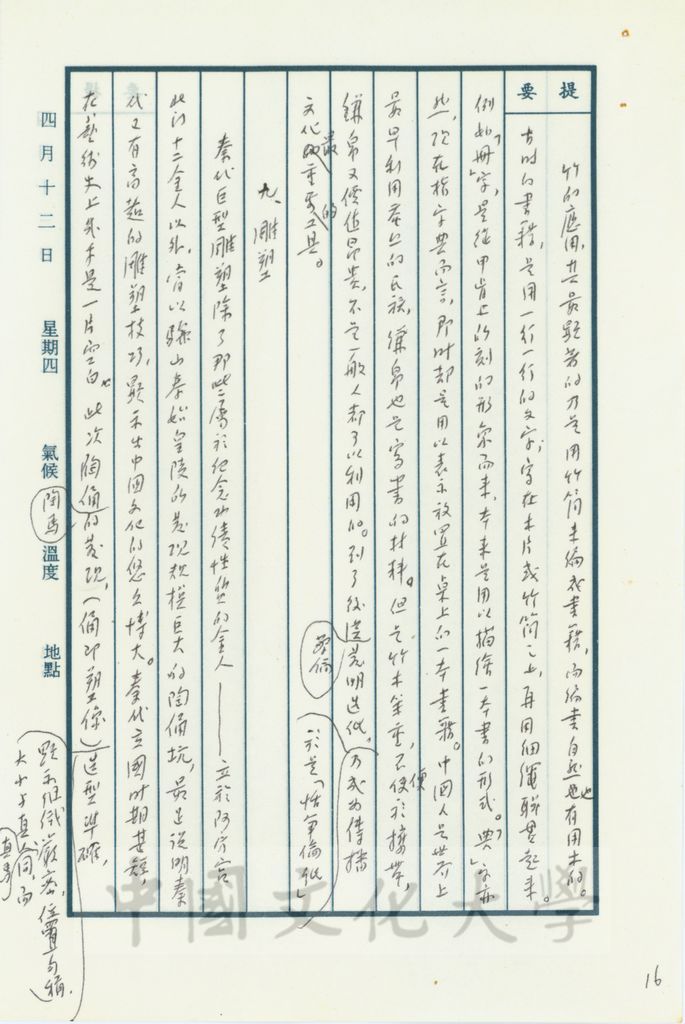 提要
竹的應用，其最顯著的乃是用竹簡來編成書籍，而編書自然也有用木的。
古時的書籍，是用一行一行的文字，寫在木片或竹簡之上，再用細繩聯貫起來。
例如「冊」字，是從甲骨上所刻的形象而來，本來是用以描繪一本書的形式。「典」字亦
然，現在指字典而言，那時却是用以表示放置在桌上的一本書籍。中國人是世界上
最早利用蠶絲的民族，縑帛也是寫書的材料。但是竹木笨重，不便於攜帶，
縑帛又價值昂貴，不是一般人都可以利用的。到了後漢蔡倫發明造紙，於是「恬筆倫紙」乃成為傳播
文化的最重要的工具。
九、雕塑
秦代巨型雕塑除了那些屬於紀念功績性質的金人——立於阿房宮
此十二金人以外，當以驪山秦始皇陵所發現規模巨大的陶俑坑，最足說明秦
代又有高超的雕塑技巧，顯示出中國文化的悠久博大。秦代立國時期甚短，
在藝術史上幾乎是一片空白，此次陶俑陶馬的發現，（俑即塑像）造型準確，
顯示組織嚴密，位置勻稱，
大小與真人真馬同，而
四月十二日 星期四 氣候 溫度 地點
中國文化大學
16